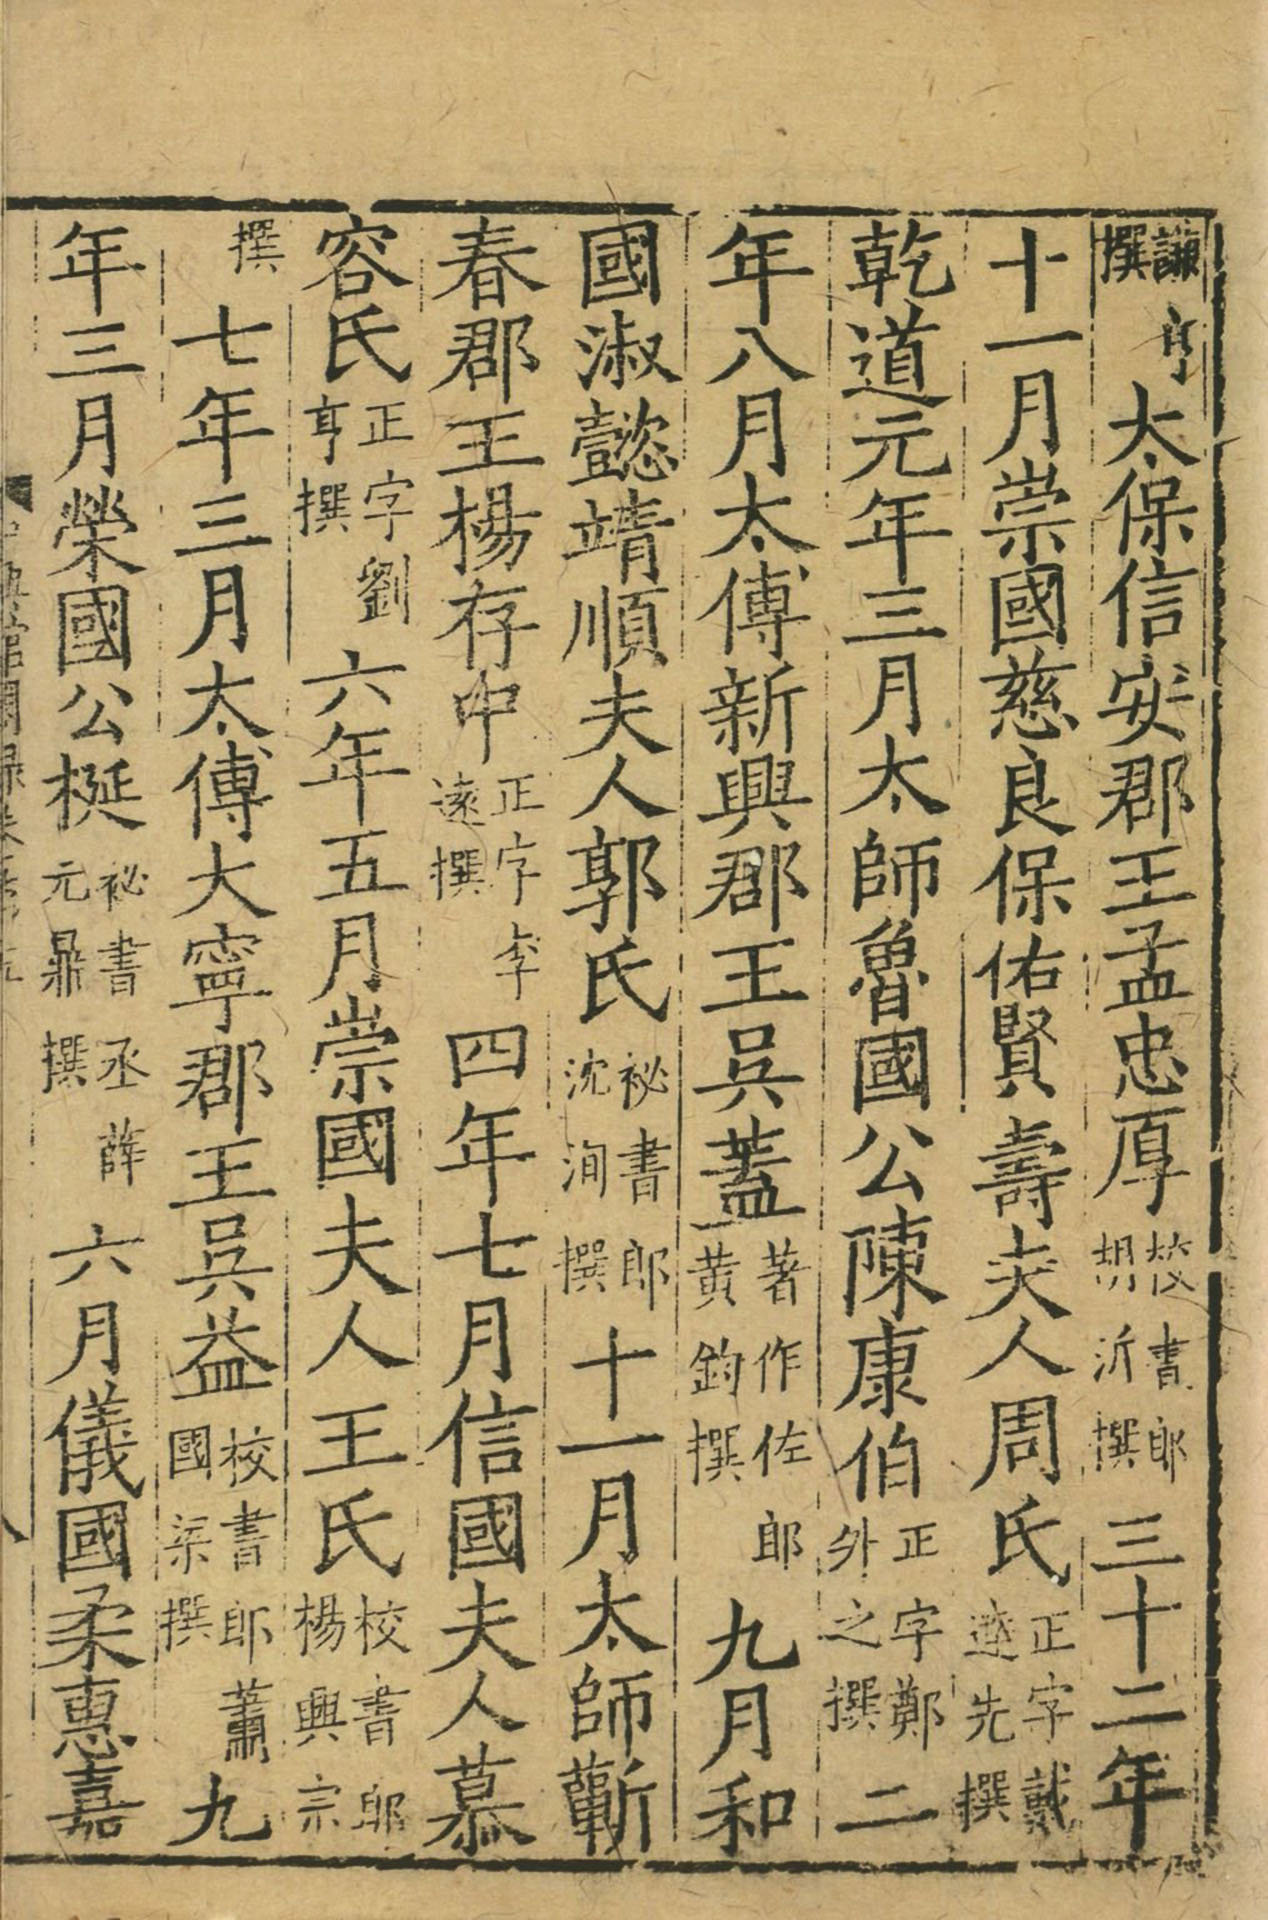 謙撰 太保信安郡王孟忠厚校書郎胡沂撰 三十二年
十一月崇國慈良保佑賢壽夫人周氏正字戴逵先撰
乾道元年三月太師魯國公陳康伯正字鄭外之撰 二
年八月太傅新興郡王吳蓋著作佐郎黃鈞撰 九月和
國淑懿靖順夫人郭氏祕書郎沈洵撰 十一月太師蘄
春郡王楊存中正字李遠撰 四年七月信國夫人慕
容氏正字劉享撰 六年五月崇國夫人王氏校書郎楊興宗
撰 七年三月太傅大寧郡王吳益校書郎蕭國梁撰 九
年三月榮國公梴祕書丞薛元鼎撰 六月儀國柔惠嘉